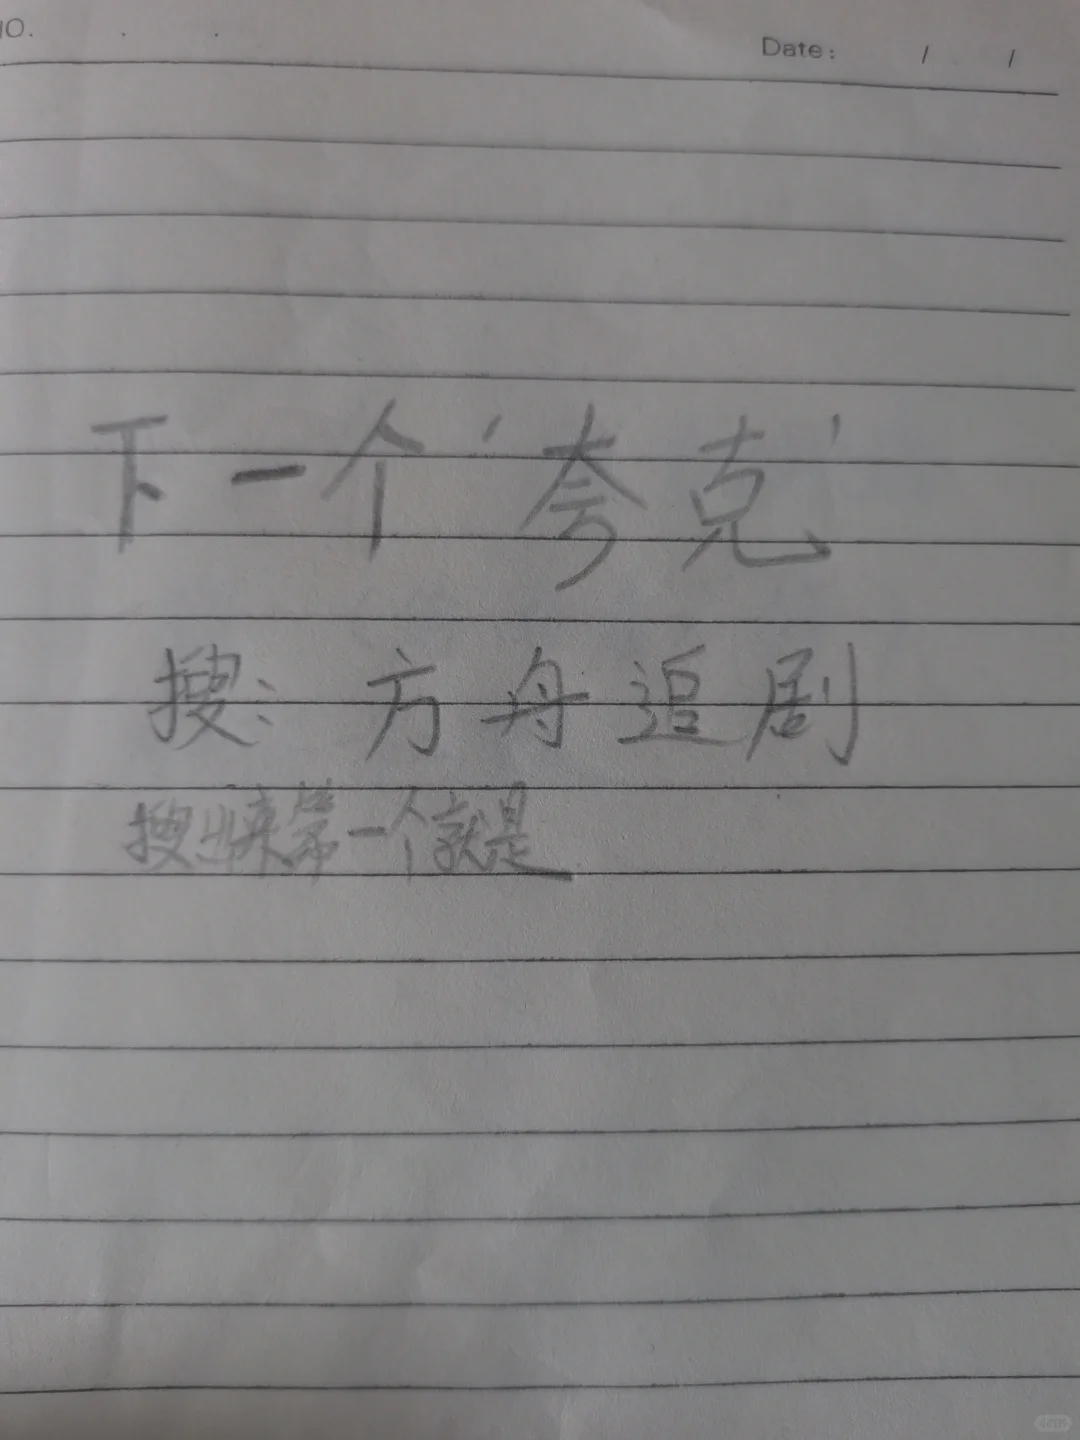 NO.
Date: / /
下一个‘夸克’
搜：方舟追剧
搜出来第一个就是